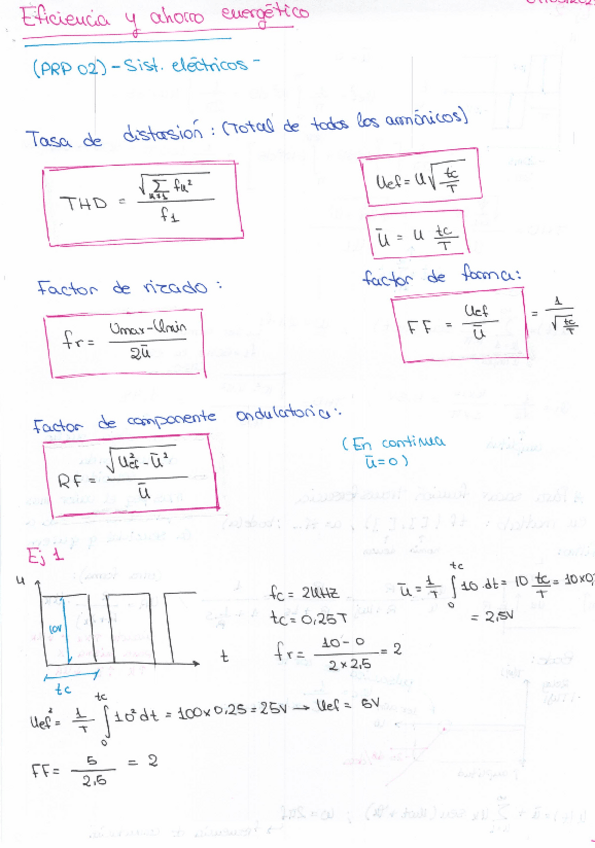 Eficiencia y ahorro energético
(PRP 02) - Sist. eléctricos -
Tasa de distorsión : (Total de todos los armónicos)
THD = √(∑ fu²) / f1
u=1
Uef = u √(tc/T)
ū = u tc/T
Factor de rizado :
fr = (Umax - Umin) / 2ū
factor de forma :
FF = Uef / ū = 1 / √(tc/T)
Factor de componente ondulatoria :
RF = √(Uef² - ū²) / ū
(En continua
ū = 0)
Ej 1
u
10V
tc
t
fc = 2kHz
tc = 0,25T
fr = (10 - 0) / (2 x 2,5) = 2
ū = 1/T ∫₀^tc 10 · dt = 10 tc/T = 10x0,
= 2,5V
Uef² = 1/T ∫₀^tc 10² dt = 100 x 0,25 = 25V → Uef = 5V
FF = 5 / 2,5 = 2